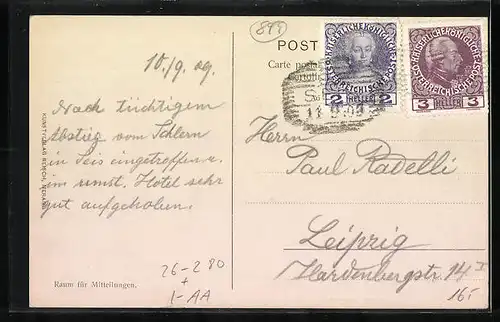 899
POST
Carte posta
10./9. 09.
Nach tüchtigem
Abstieg vom Schlern
in Seis eingetroffen u.
im umst. Hotel sehr
gut aufgehoben.
KAISERLICHE KÖNIGLICHE
ÖSTERREICHISCHE POST
2 HELLER 2
KAISERLICHE KÖNIGLICHE
ÖSTERREICHISCHE POST
3 HELLER 3
11 9 09
Herrn
Paul Radelli
Leipzig
Hardenbergstr. 14 I
Raum für Mitteilungen.
26-2 80
+
1-AA
16,-